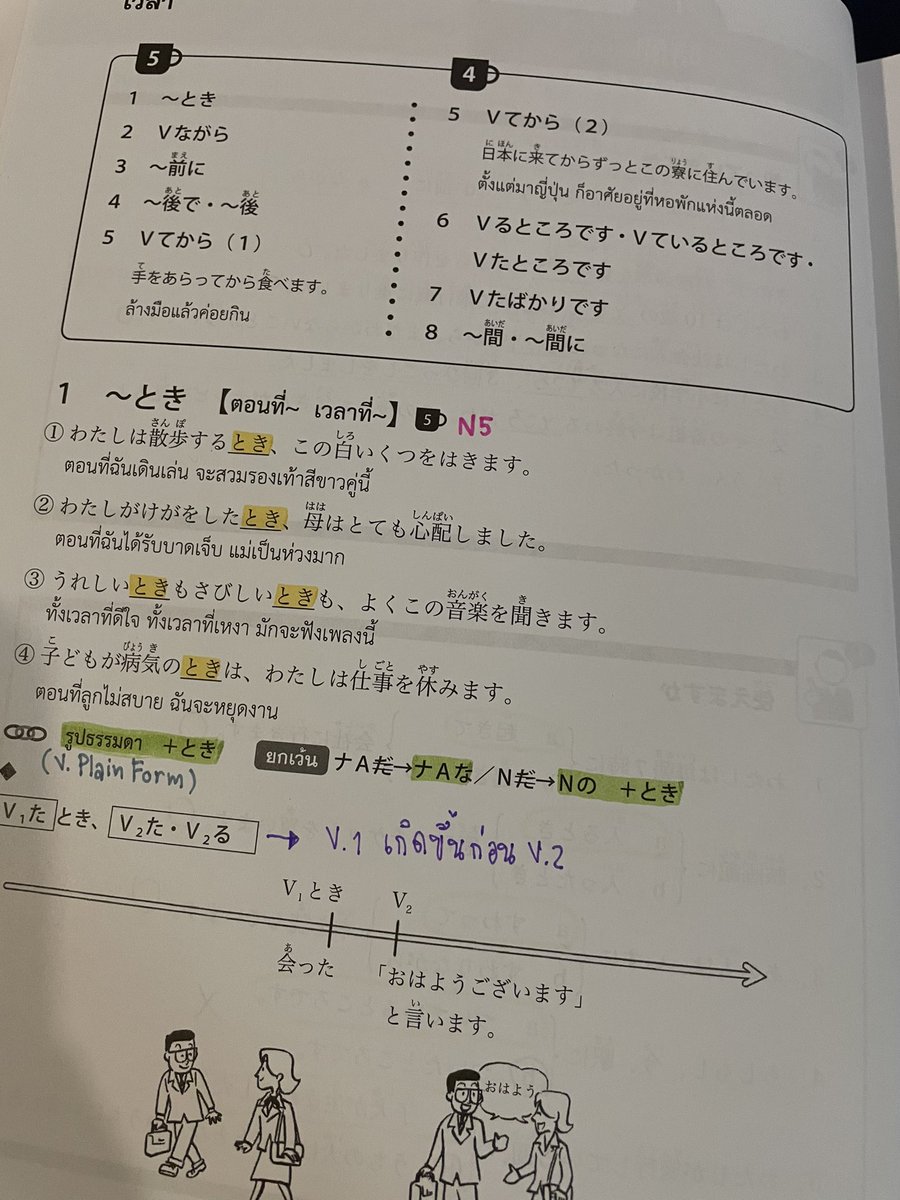 เวลา
5
1 ～とき
2 Vながら
3 ～前に
4 ～後で・～後
5 Vてから（1）
手をあらってから食べます。
ล้างมือแล้วค่อยกิน
4
5 Vてから（2）
日本に来てからずっとこの寮に住んでいます。
ตั้งแต่มาญี่ปุ่น ก็อาศัยอยู่ที่หอพักแห่งนี้ตลอด
6 Vるところです・Vているところです・
Vたところです
7 Vたばかりです
8 ～間・～間に
1 ～とき 【ตอนที่~ เวลาที่~】 5 N5
① わたしは散歩するとき、この白いくつをはきます。
ตอนที่ฉันเดินเล่น จะสวมรองเท้าสีขาวคู่นี้
② わたしがけがをしたとき、母はとても心配しました。
ตอนที่ฉันได้รับบาดเจ็บ แม่เป็นห่วงมาก
③ うれしいときもさびしいときも、よくこの音楽を聞きます。
ทั้งเวลาที่ดีใจ ทั้งเวลาที่เหงา มักจะฟังเพลงนี้
④ 子どもが病気のときは、わたしは仕事を休みます。
ตอนที่ลูกไม่สบาย ฉันจะหยุดงาน
รูปธรรมดา ＋とき ยกเว้น ナAだ→ナAな／Nだ→Nの ＋とき
(V. Plain Form)
V₁た とき、 V₂た・V₂る → V.1 เกิดขึ้นก่อน V.2
V₁とき V₂
会った 「おはようございます」
と言います。
おはよう